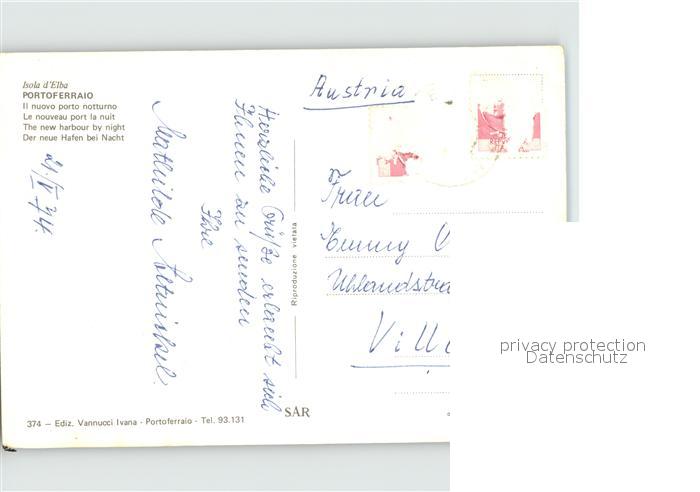 Isola d'Elba
PORTOFERRAIO
Il nuovo porto notturno
Le nouveau port la nuit
The new harbour by night
Der neue Hafen bei Nacht
21/V 74.
Herzliche Grüße erlaubt sich
Ihnen zu senden
Ihre
Mathilde
Riproduzione vietata
Austria
Frau
Emmy
Uhlandstra
Vill
374 — Ediz. Vannucci Ivana - Portoferraio - Tel. 93.131
SAR
privacy protection
Datenschutz